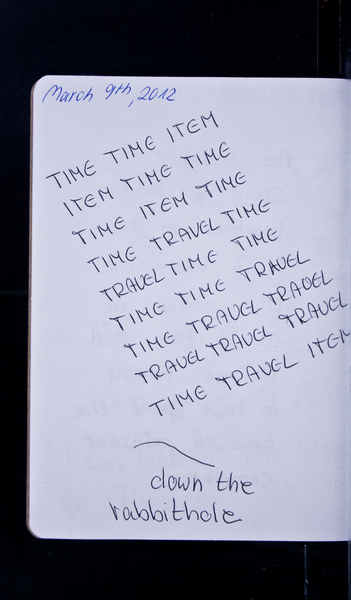 March 9th, 2012
TIME TIME ITEM
ITEM TIME TIME
TIME ITEM TIME
TIME TRAVEL TIME
TRAVEL TIME TIME
TIME TIME TRAVEL
TIME TRAVEL TRAVEL
TRAVEL TRAVEL TRAVEL
TIME TRAVEL ITEM
down the
rabbithole